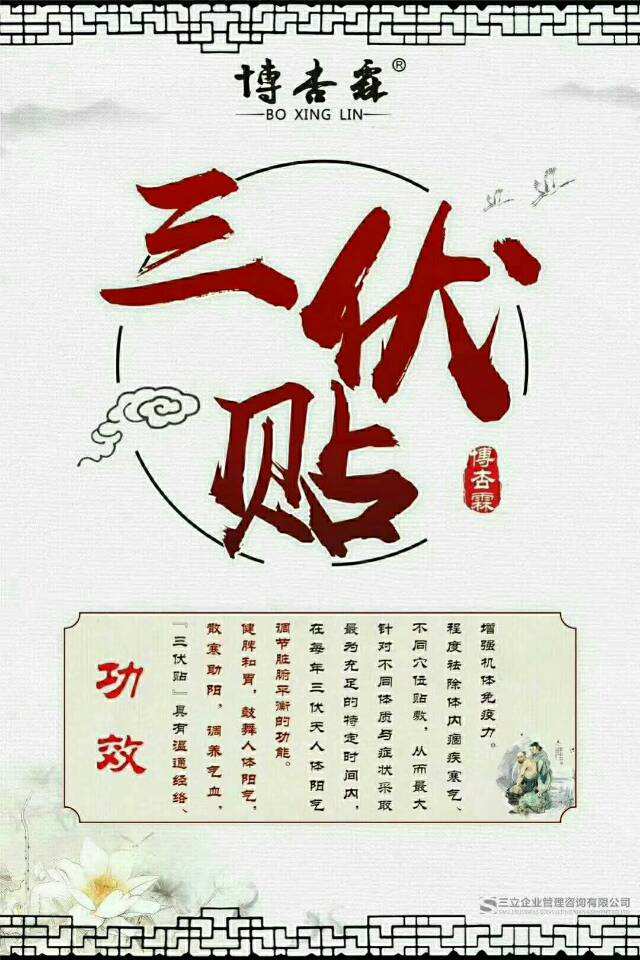 博杏霖®
BO XING LIN
三伏
贴
博杏霖
功效
『三伏贴』具有温通经络、
散寒助阳，调养气血，
健脾和胃，鼓舞人体阳气，
调节脏腑平衡的功能。
在每年三伏天人体阳气
最为充足的特定时间内，
针对不同体质与症状采取
不同穴位贴敷，从而最大
程度祛除体内痼疾寒气、
增强机体免疫力。
三立企业管理咨询有限公司